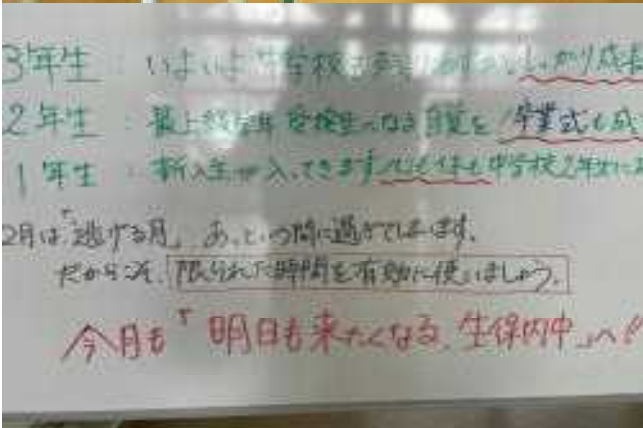 3年生：いよいよ中学校
2年生：最上級生 受検生になる自覚を 卒業式も成
1年生：新入生が入ってきます 心も体も中学校2年生に
2月は「逃げる月」あっという間に過ぎてしまいます。
だからこそ、限られた時間を有効に使いましょう。
今月も「明日も来たくなる 生保内中」へ